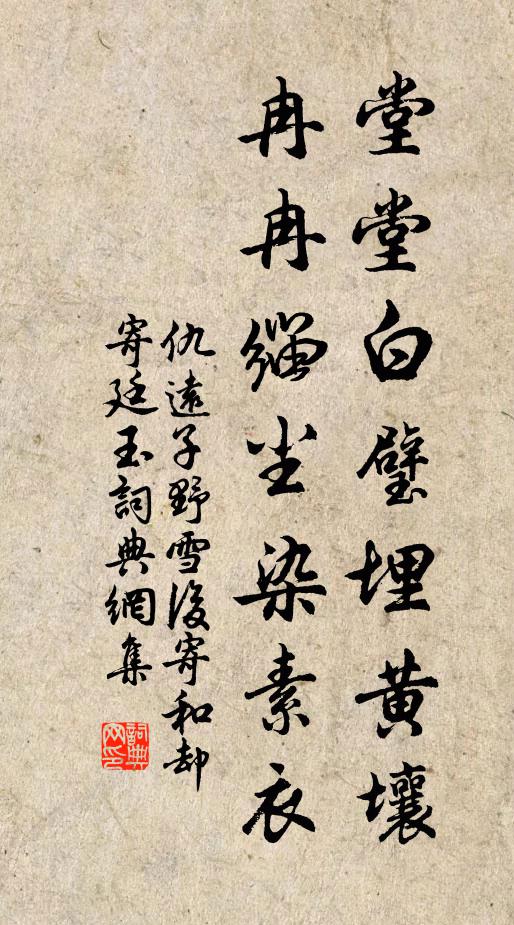 堂堂白璧埋黄壤
冉冉缁尘染素衣
仇遠子野雪後寄和却
寄廷玉詞典網集
詞典网印